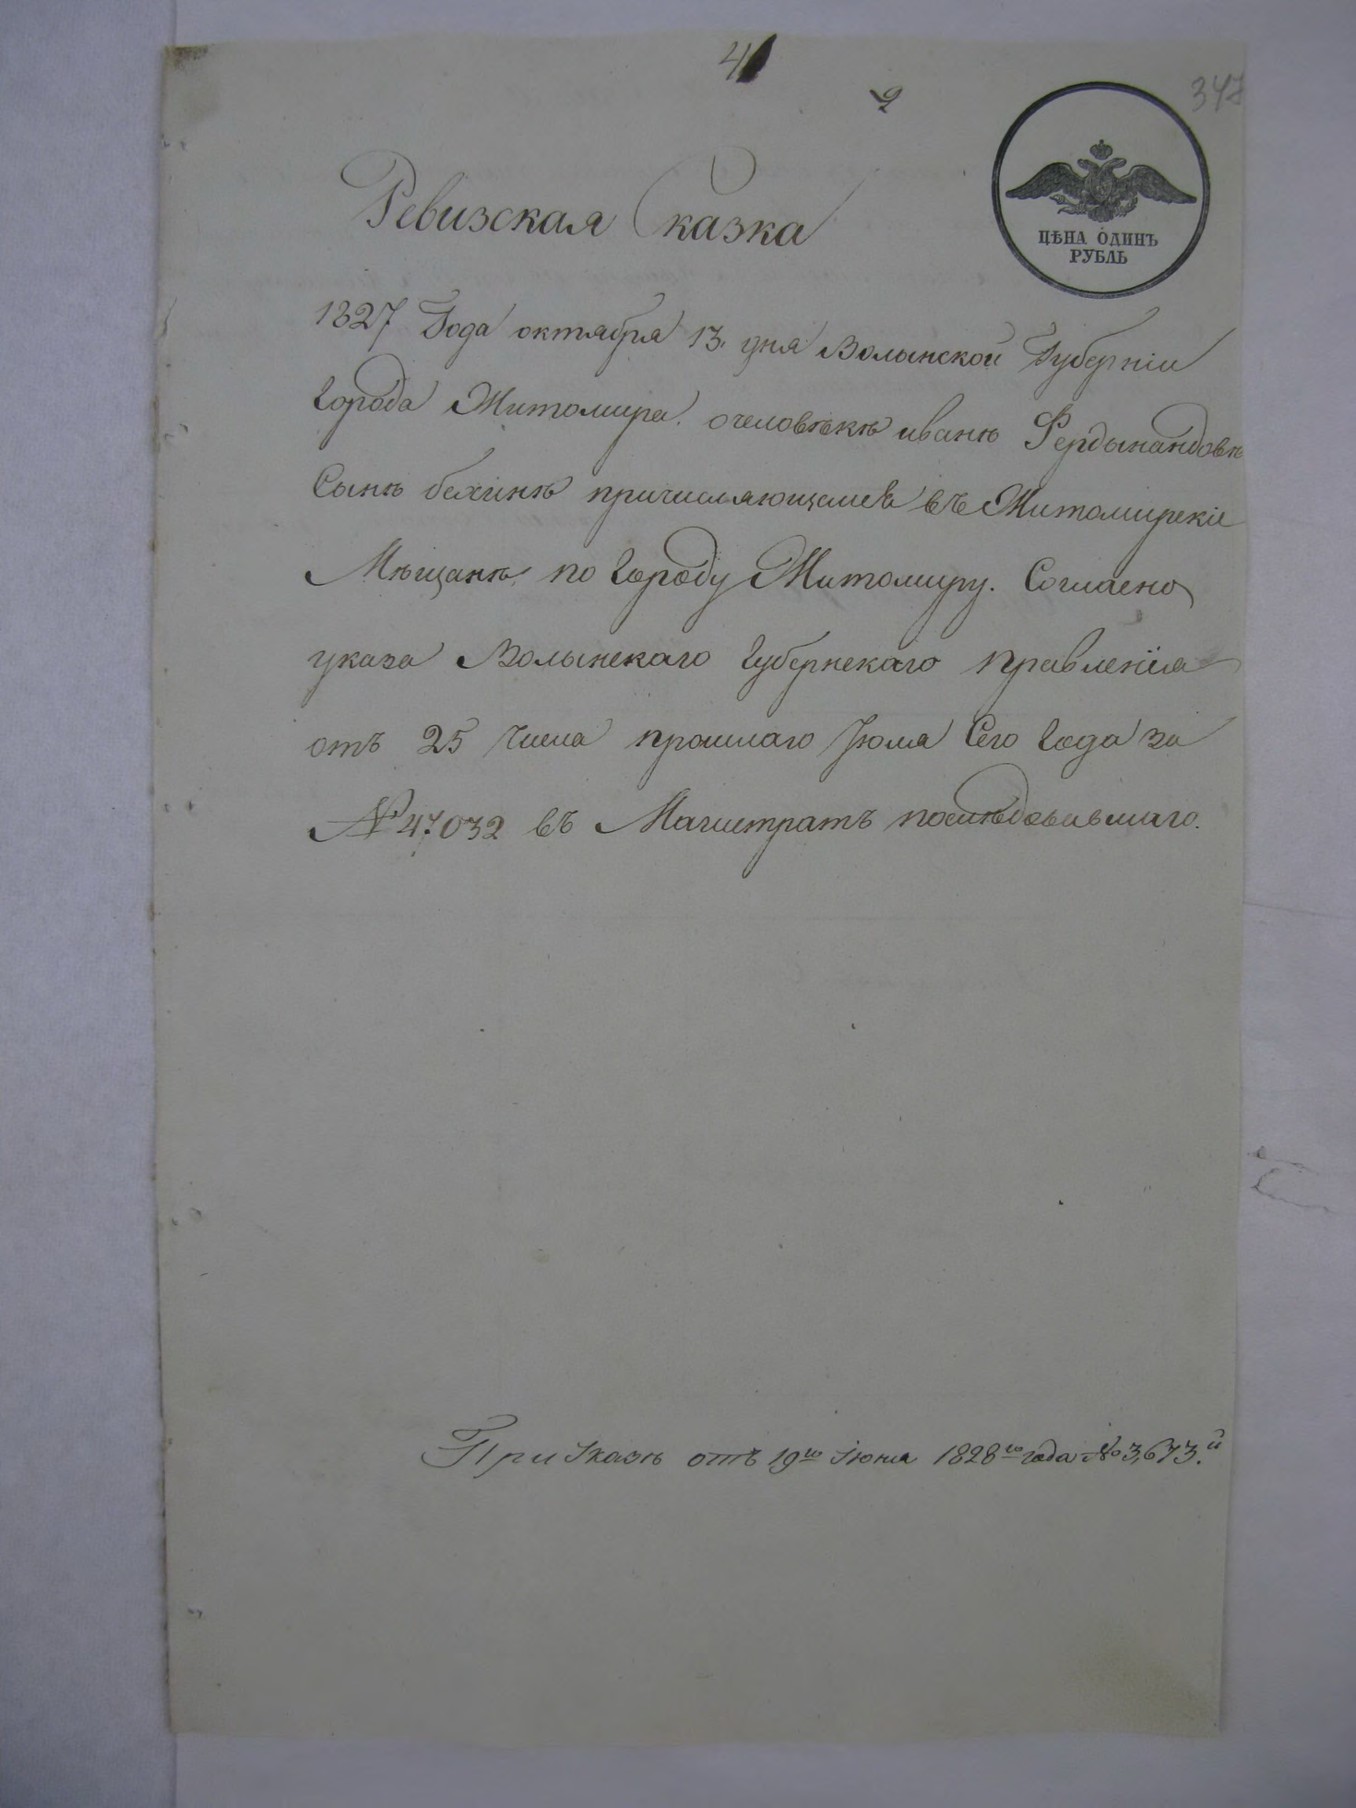 4
2
347
ЦѢНА ОДИНЪ
РУБЛЬ
Ревизская Сказка
1827 Года октября 13. дня Волынской Губерніи
Города Житомира. о человѣкѣ иванѣ Фердынандовѣ
Сынѣ бехинѣ причисляющемся въ Житомирскіе
Мѣщанѣ по Городу Житомиру. Согласно
указа Волынскаго Губернскаго правленія
отъ 25 числа прошлаго Іюля Сего Года за
№ 47032 въ Магистратъ послѣдовавшаго.
При Указѣ отъ 19го Іюня 1828го года № 3,673.й